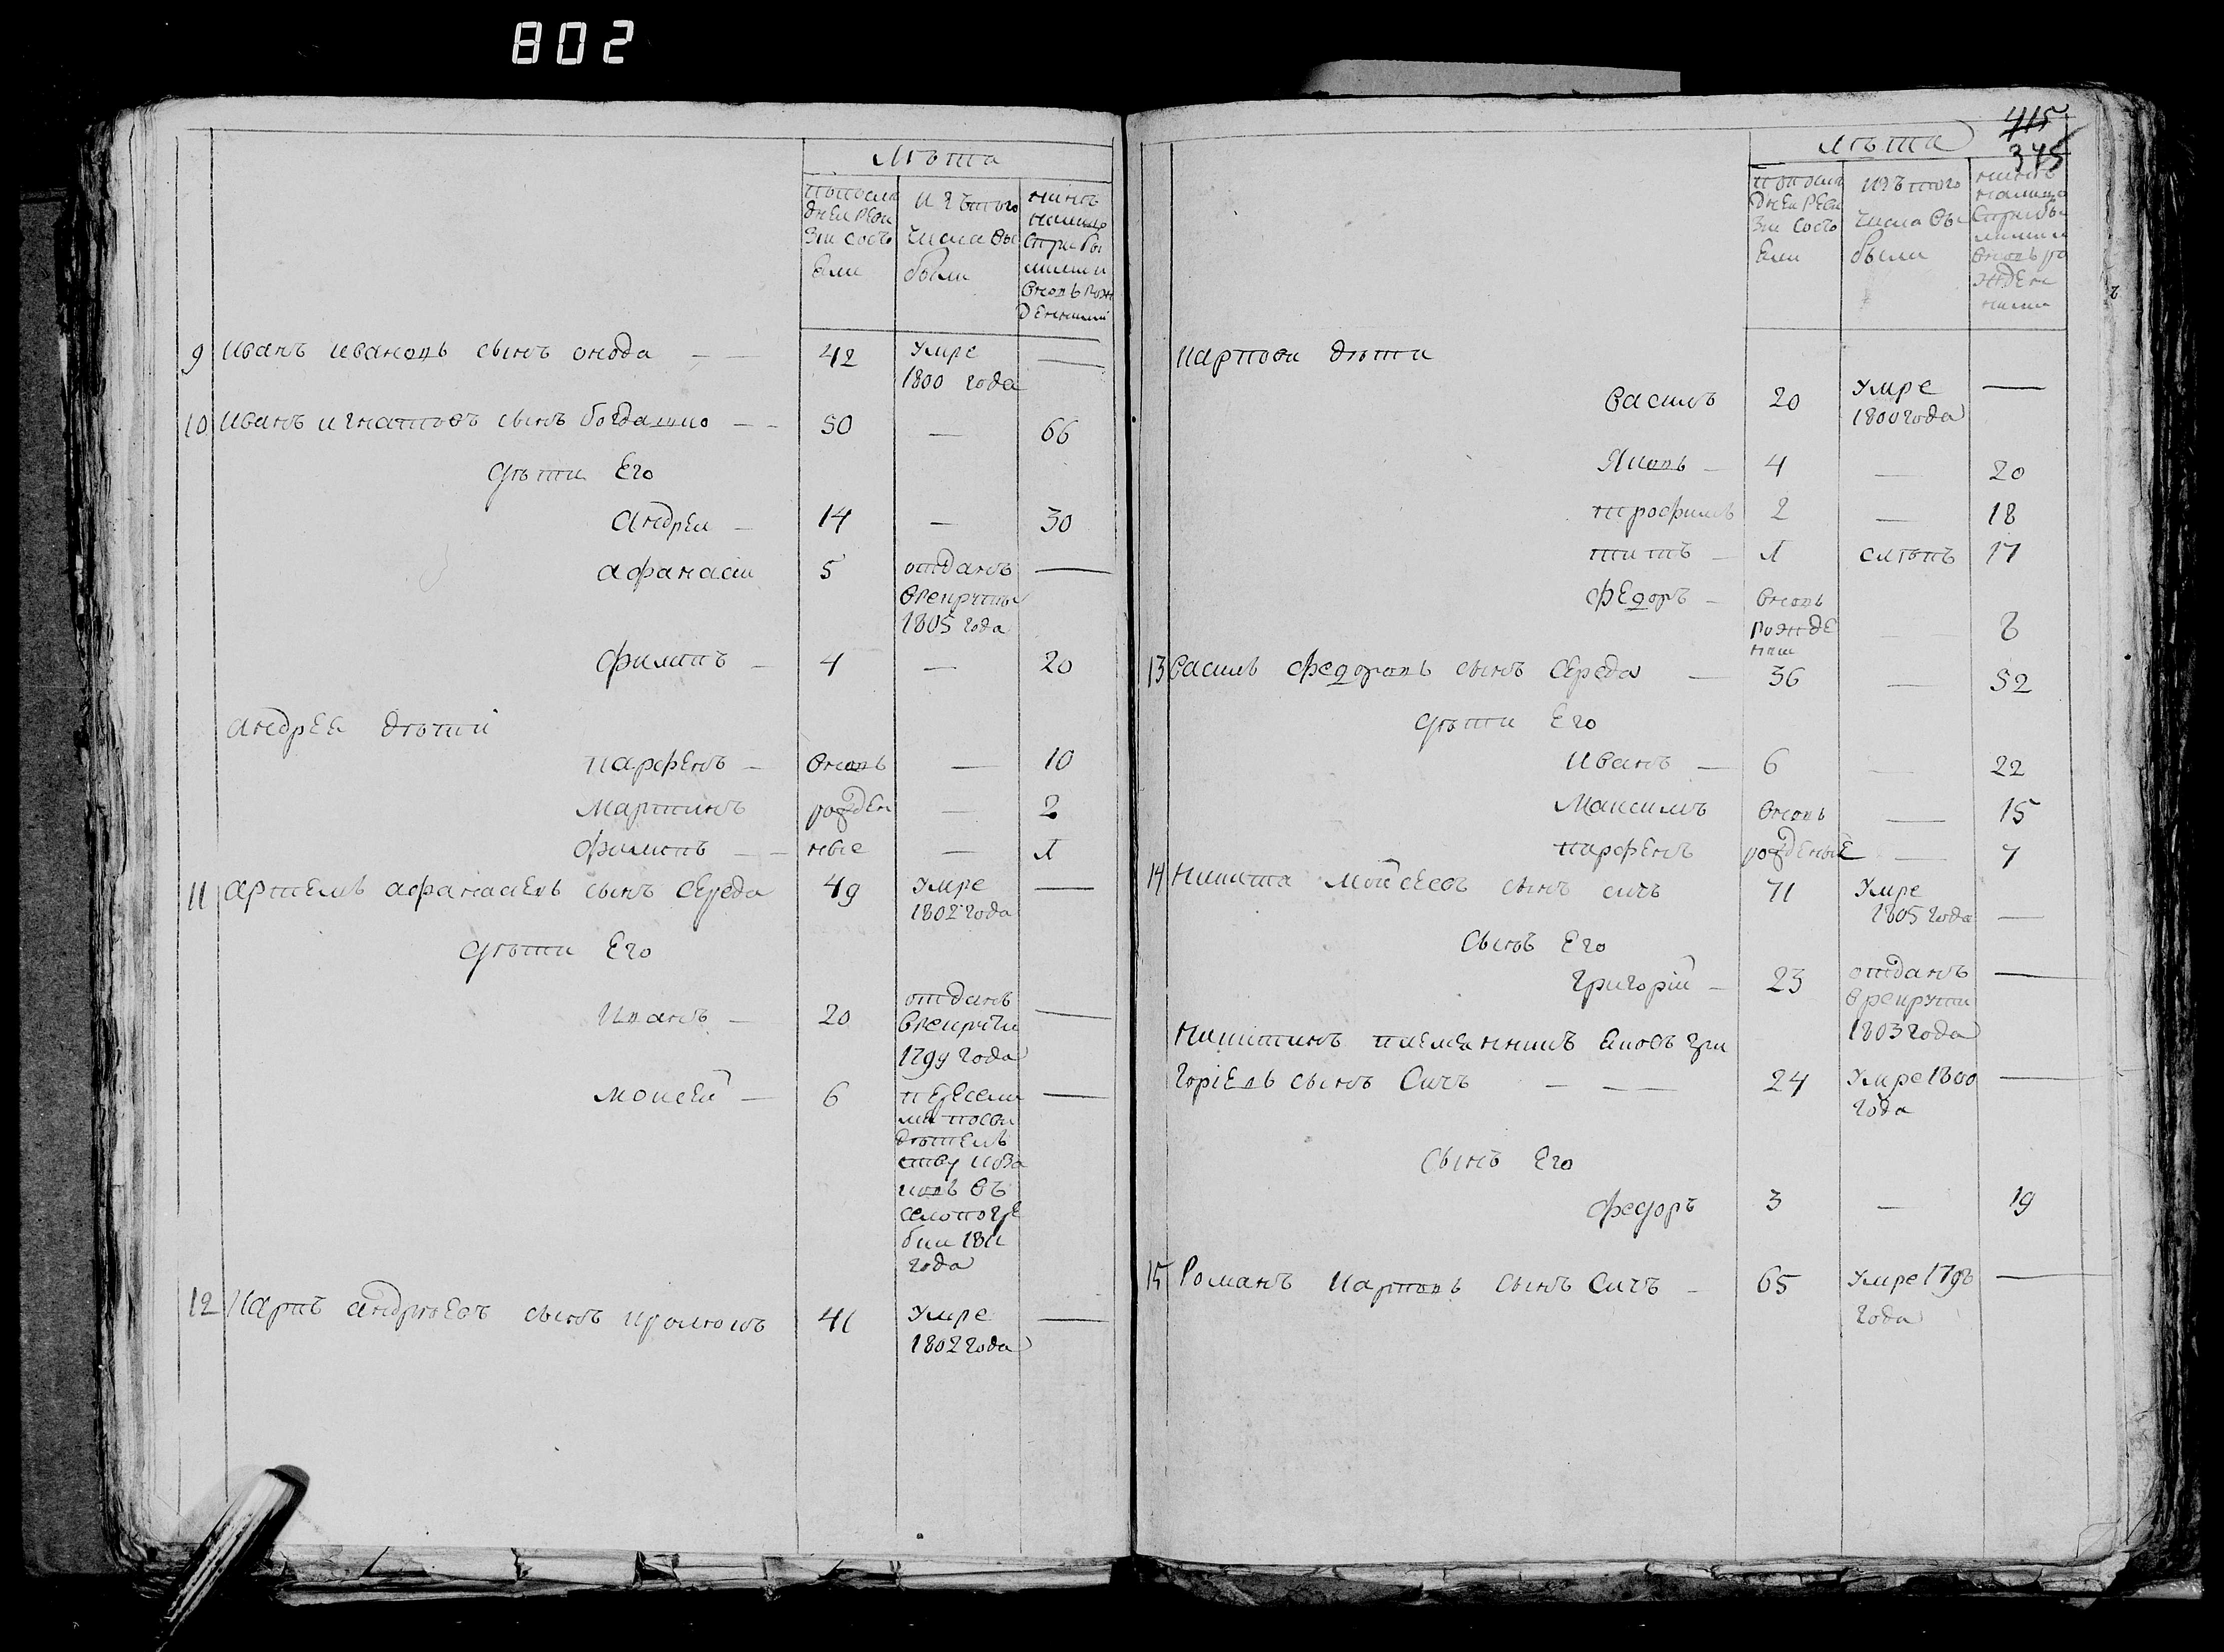 802
лѣта
по посли
дней реви
зіи состо
яли
изъ того
числа вы
были
нынѣ
на лицо
с прибы
лыми и
вновь рож
денными
9 Иванъ Ивановъ сынъ
42
Умре
1800 года
—
10 Иванъ Игнатовъ сынъ
50
—
66
Дѣти Его
Андрей —
14
—
30
Афанасій
5
отданъ
в рекруты
1805 года
—
Филипъ —
4
—
20
Андрея дѣти
Парфенъ —
вновь
—
10
Мартинъ
рожден
—
2
Филипъ —
ные
—
11 Артемъ Афанасіевъ сынъ Середа
49
Умре
1802 года
—
Дѣти Его
Иванъ —
20
отданъ
в рекруты
1799 года
—
Моисей —
6
пересели
ли по сви
дѣтель
ству
въ
село погре
бки 1811
года
—
12 Карпъ Андрѣевъ сынъ
41
Умре
1802 года
—
415
345
лѣта
по послѣ
дней реви
зіи состо
яли
изъ того
числа вы
были
нынѣ
на лицо
с прибы
лыми и
вновь ро
жден
ными
Карпови дѣти
Василь
20
Умре
1800 года
—
Яковъ —
4
—
20
Трофимъ
2
—
18
Титъ —
слѣпъ
17
Федоръ —
вновь
рожде
ный
—
8
13 Василь Федоровъ сынъ Середа —
36
—
52
Дѣти Его
Иванъ —
6
—
22
Максимъ
вновь
—
15
Парфенъ
рожденые
—
7
14 Никита Мойсеевъ сынъ Сичъ
71
Умре
1805 года
—
Сынъ Его
Григорій —
23
отданъ
в рекруты
1803 года
—
Никитинъ племенникъ Яковъ Гри
горіевъ сынъ Сичъ — —
24
Умре 1800
года
—
Сынъ Его
Федоръ
3
—
19
15 Романъ Карповъ сынъ Сичъ —
65
Умре 1798
года
—